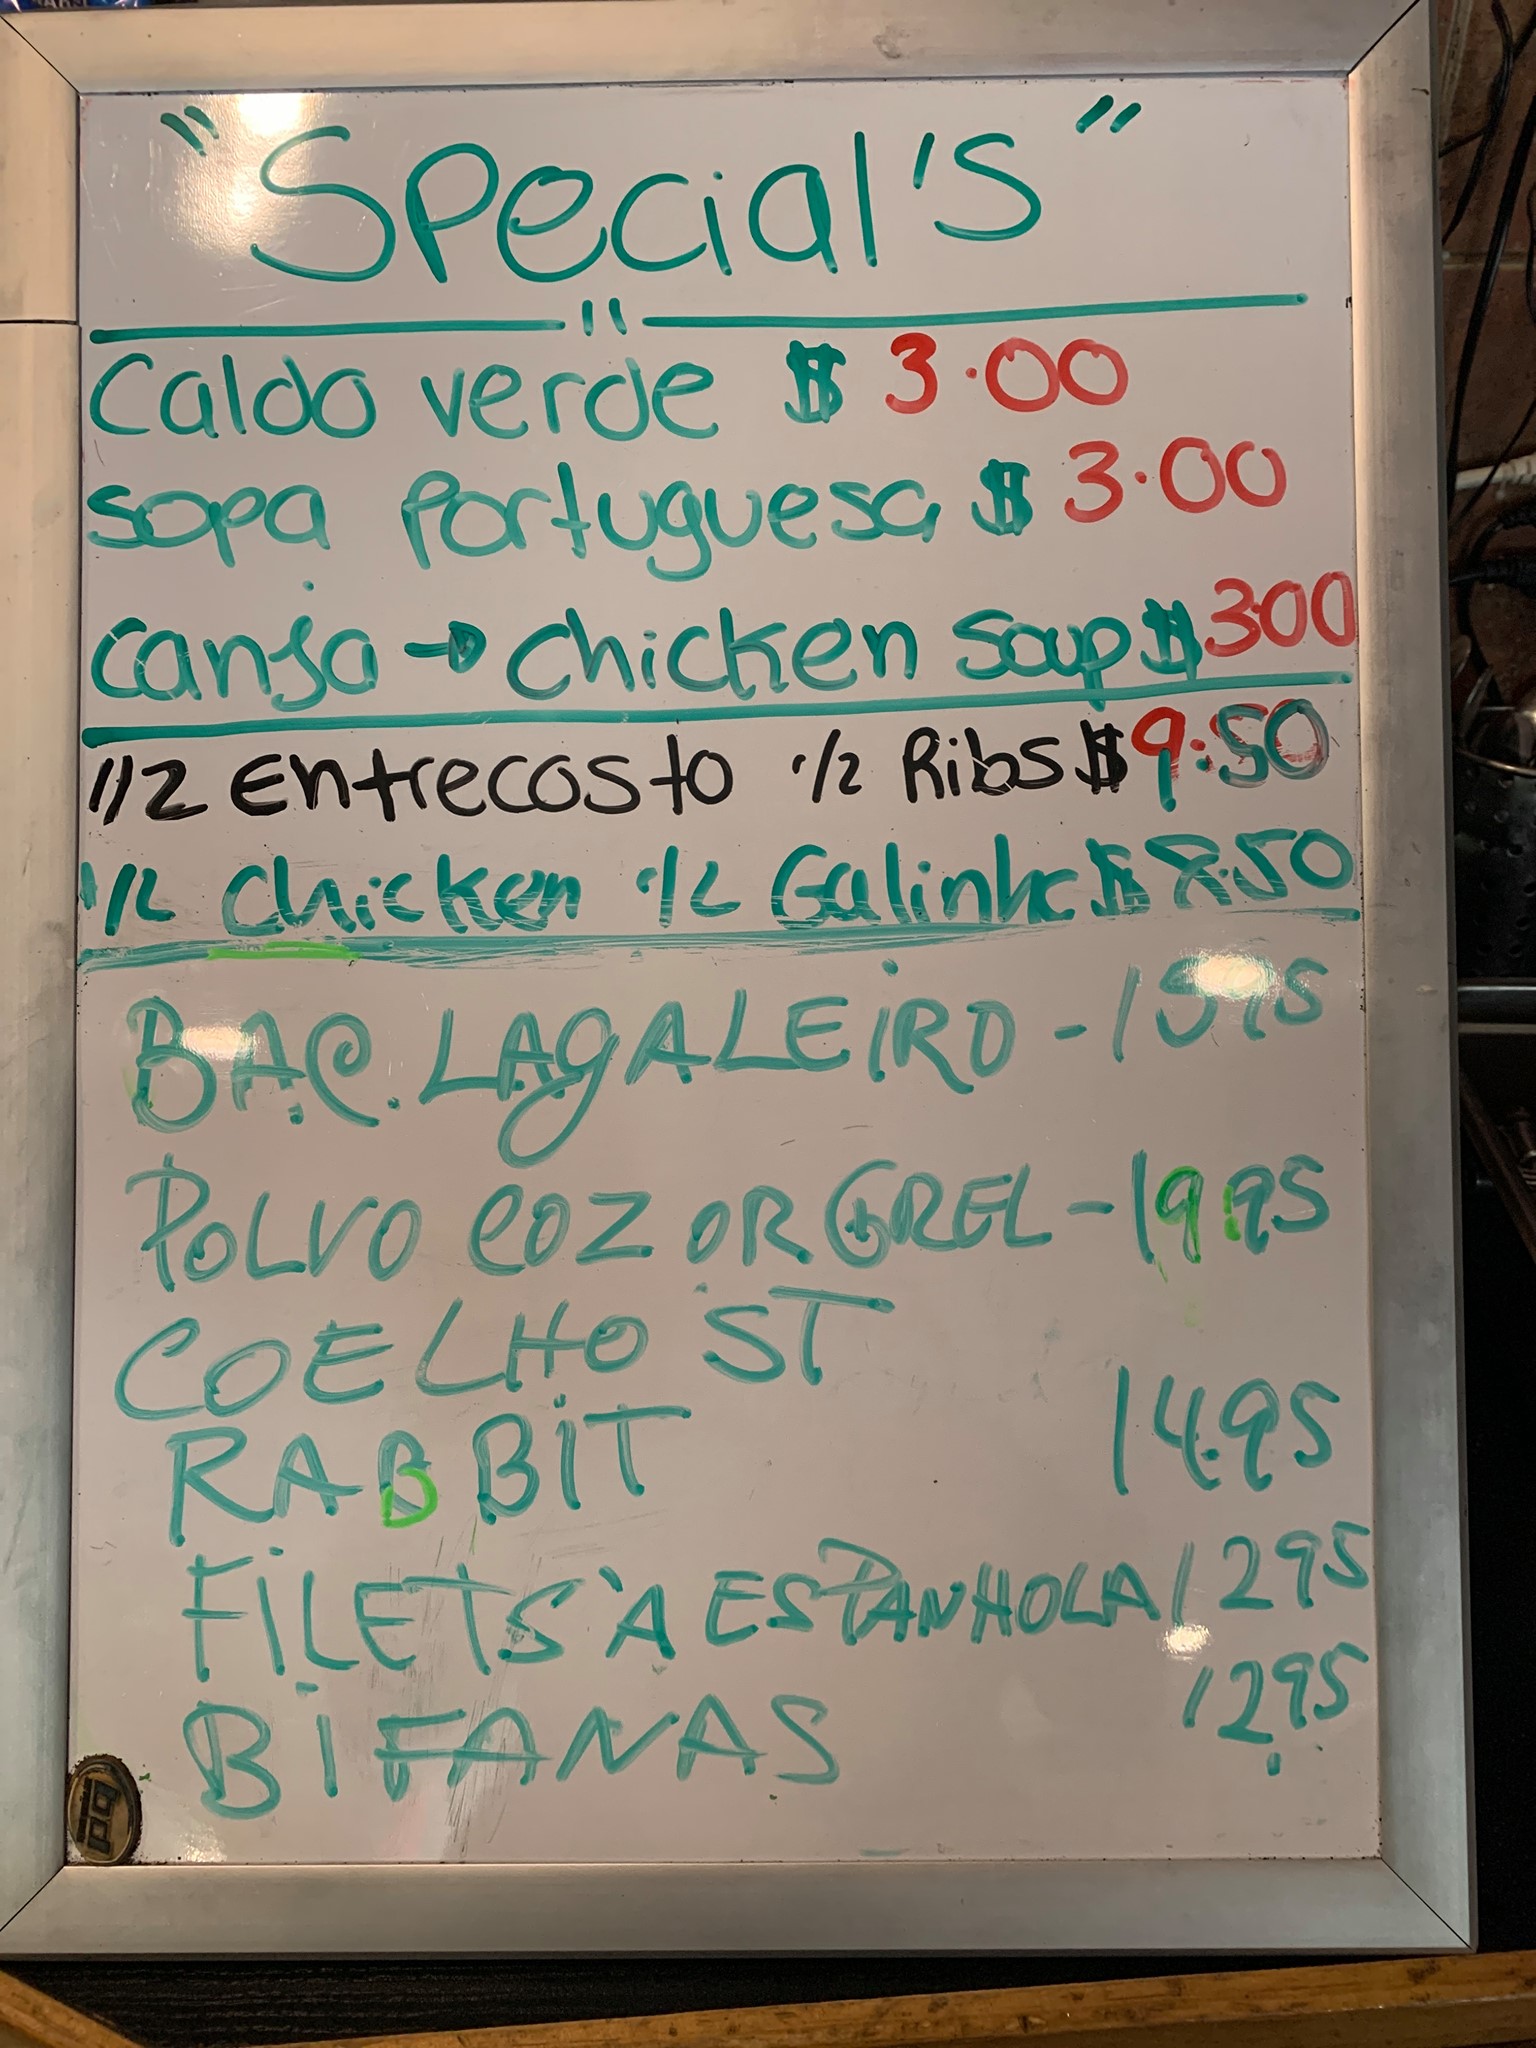 "Special's"
Caldo verde $ 3.00
Sopa Portuguesa $ 3.00
Canja → Chicken Soup $ 3.00
1/2 Entrecosto 1/2 Ribs $ 9.50
1/2 Chicken 1/2 Galinha $ 8.50
BAC. LAGALEIRO - 15.95
POLVO COZ OR GREL - 19.95
COELHO ST
RABBIT 14.95
FILETS À ESPANHOLA 12 95
BIFANAS 12.95